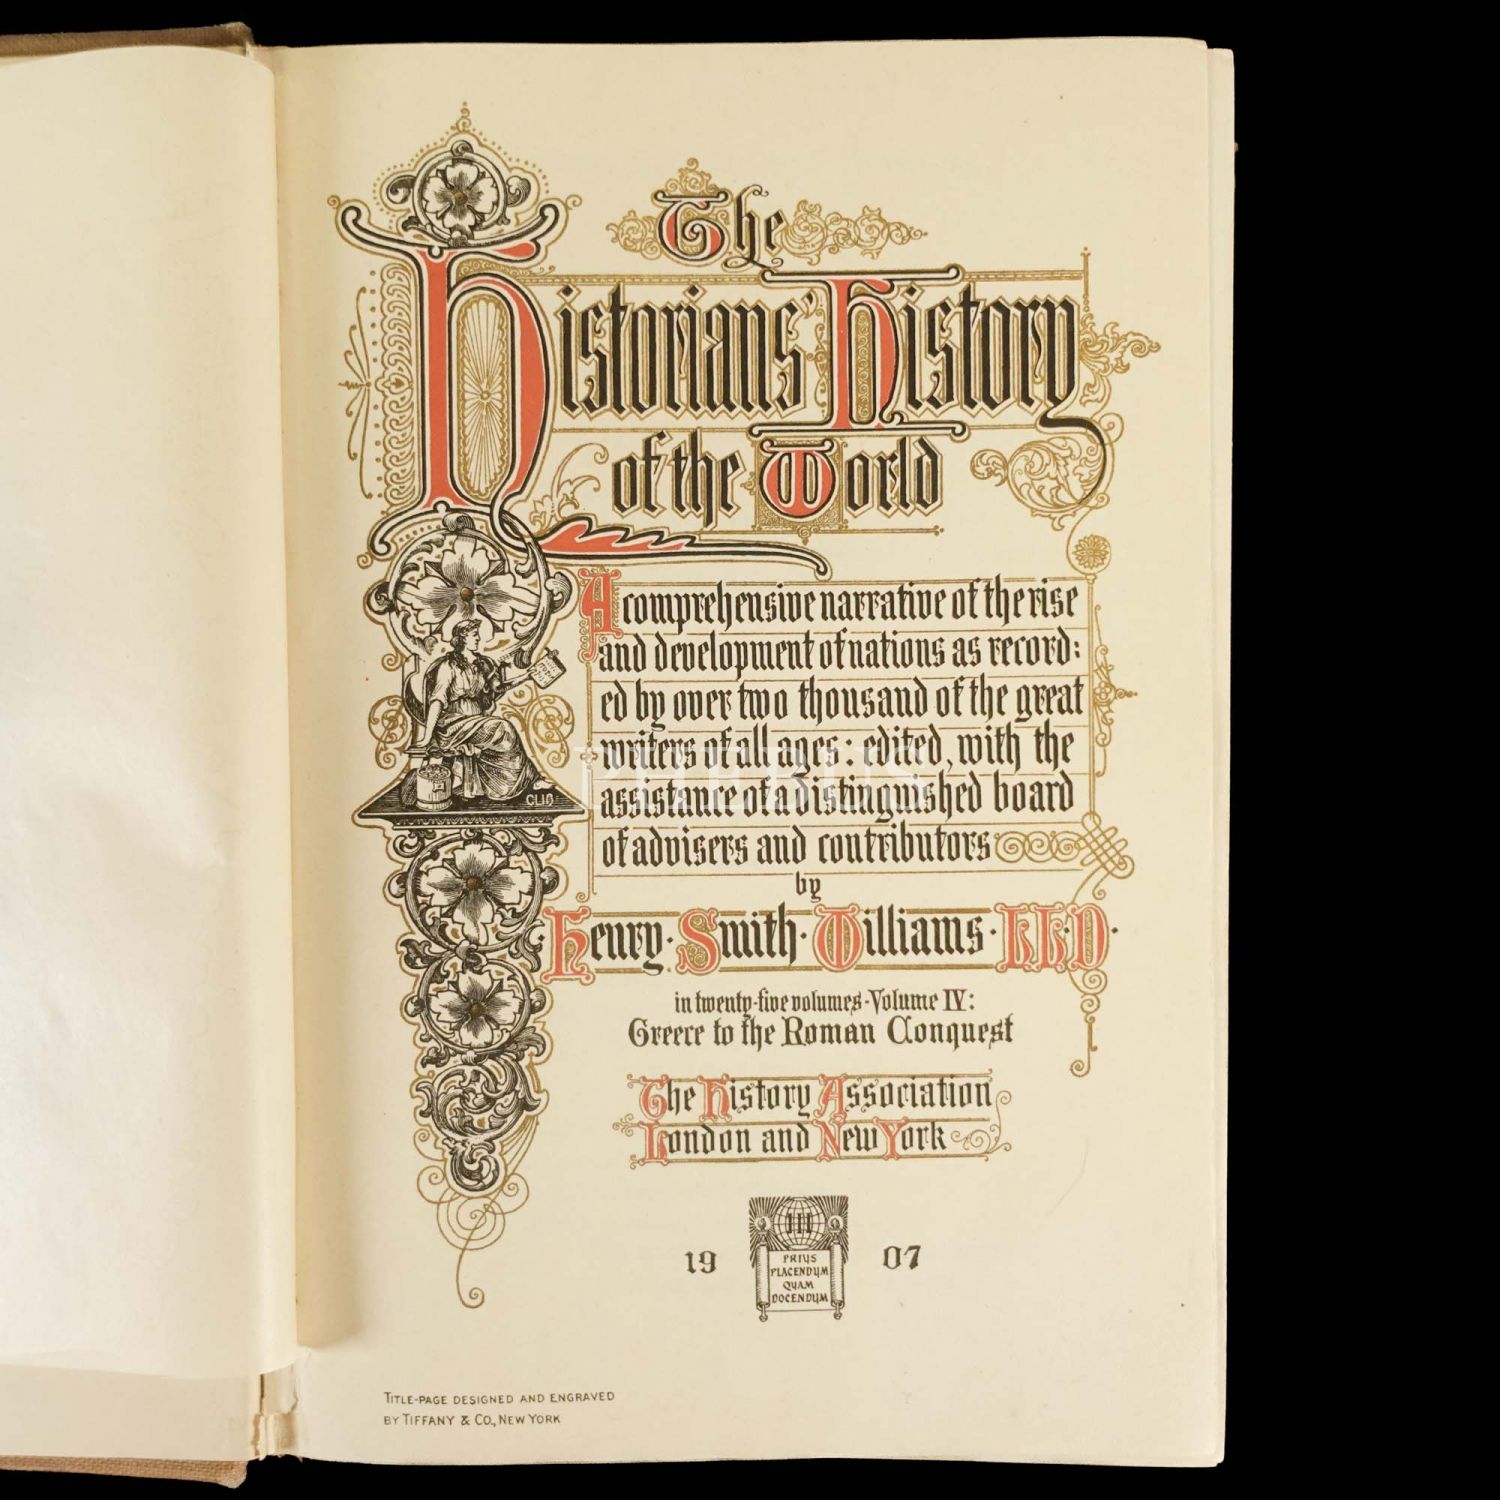 The
Historians' History
of the World
A comprehensive narrative of the rise
and development of nations as record:
ed by over two thousand of the great
writers of all ages: edited, with the
assistance of a distinguished board
of advisers and contributors
by
Henry · Smith · Williams · LL·D ·
in twenty-five volumes - Volume IV:
Greece to the Roman Conquest
The History Association
London and New York
19 07
III
PRIUS
PLACENDUM
QUAM
DOCENDUM
CLIO
TITLE-PAGE DESIGNED AND ENGRAVED
BY TIFFANY & CO., NEW YORK
PHEBUS